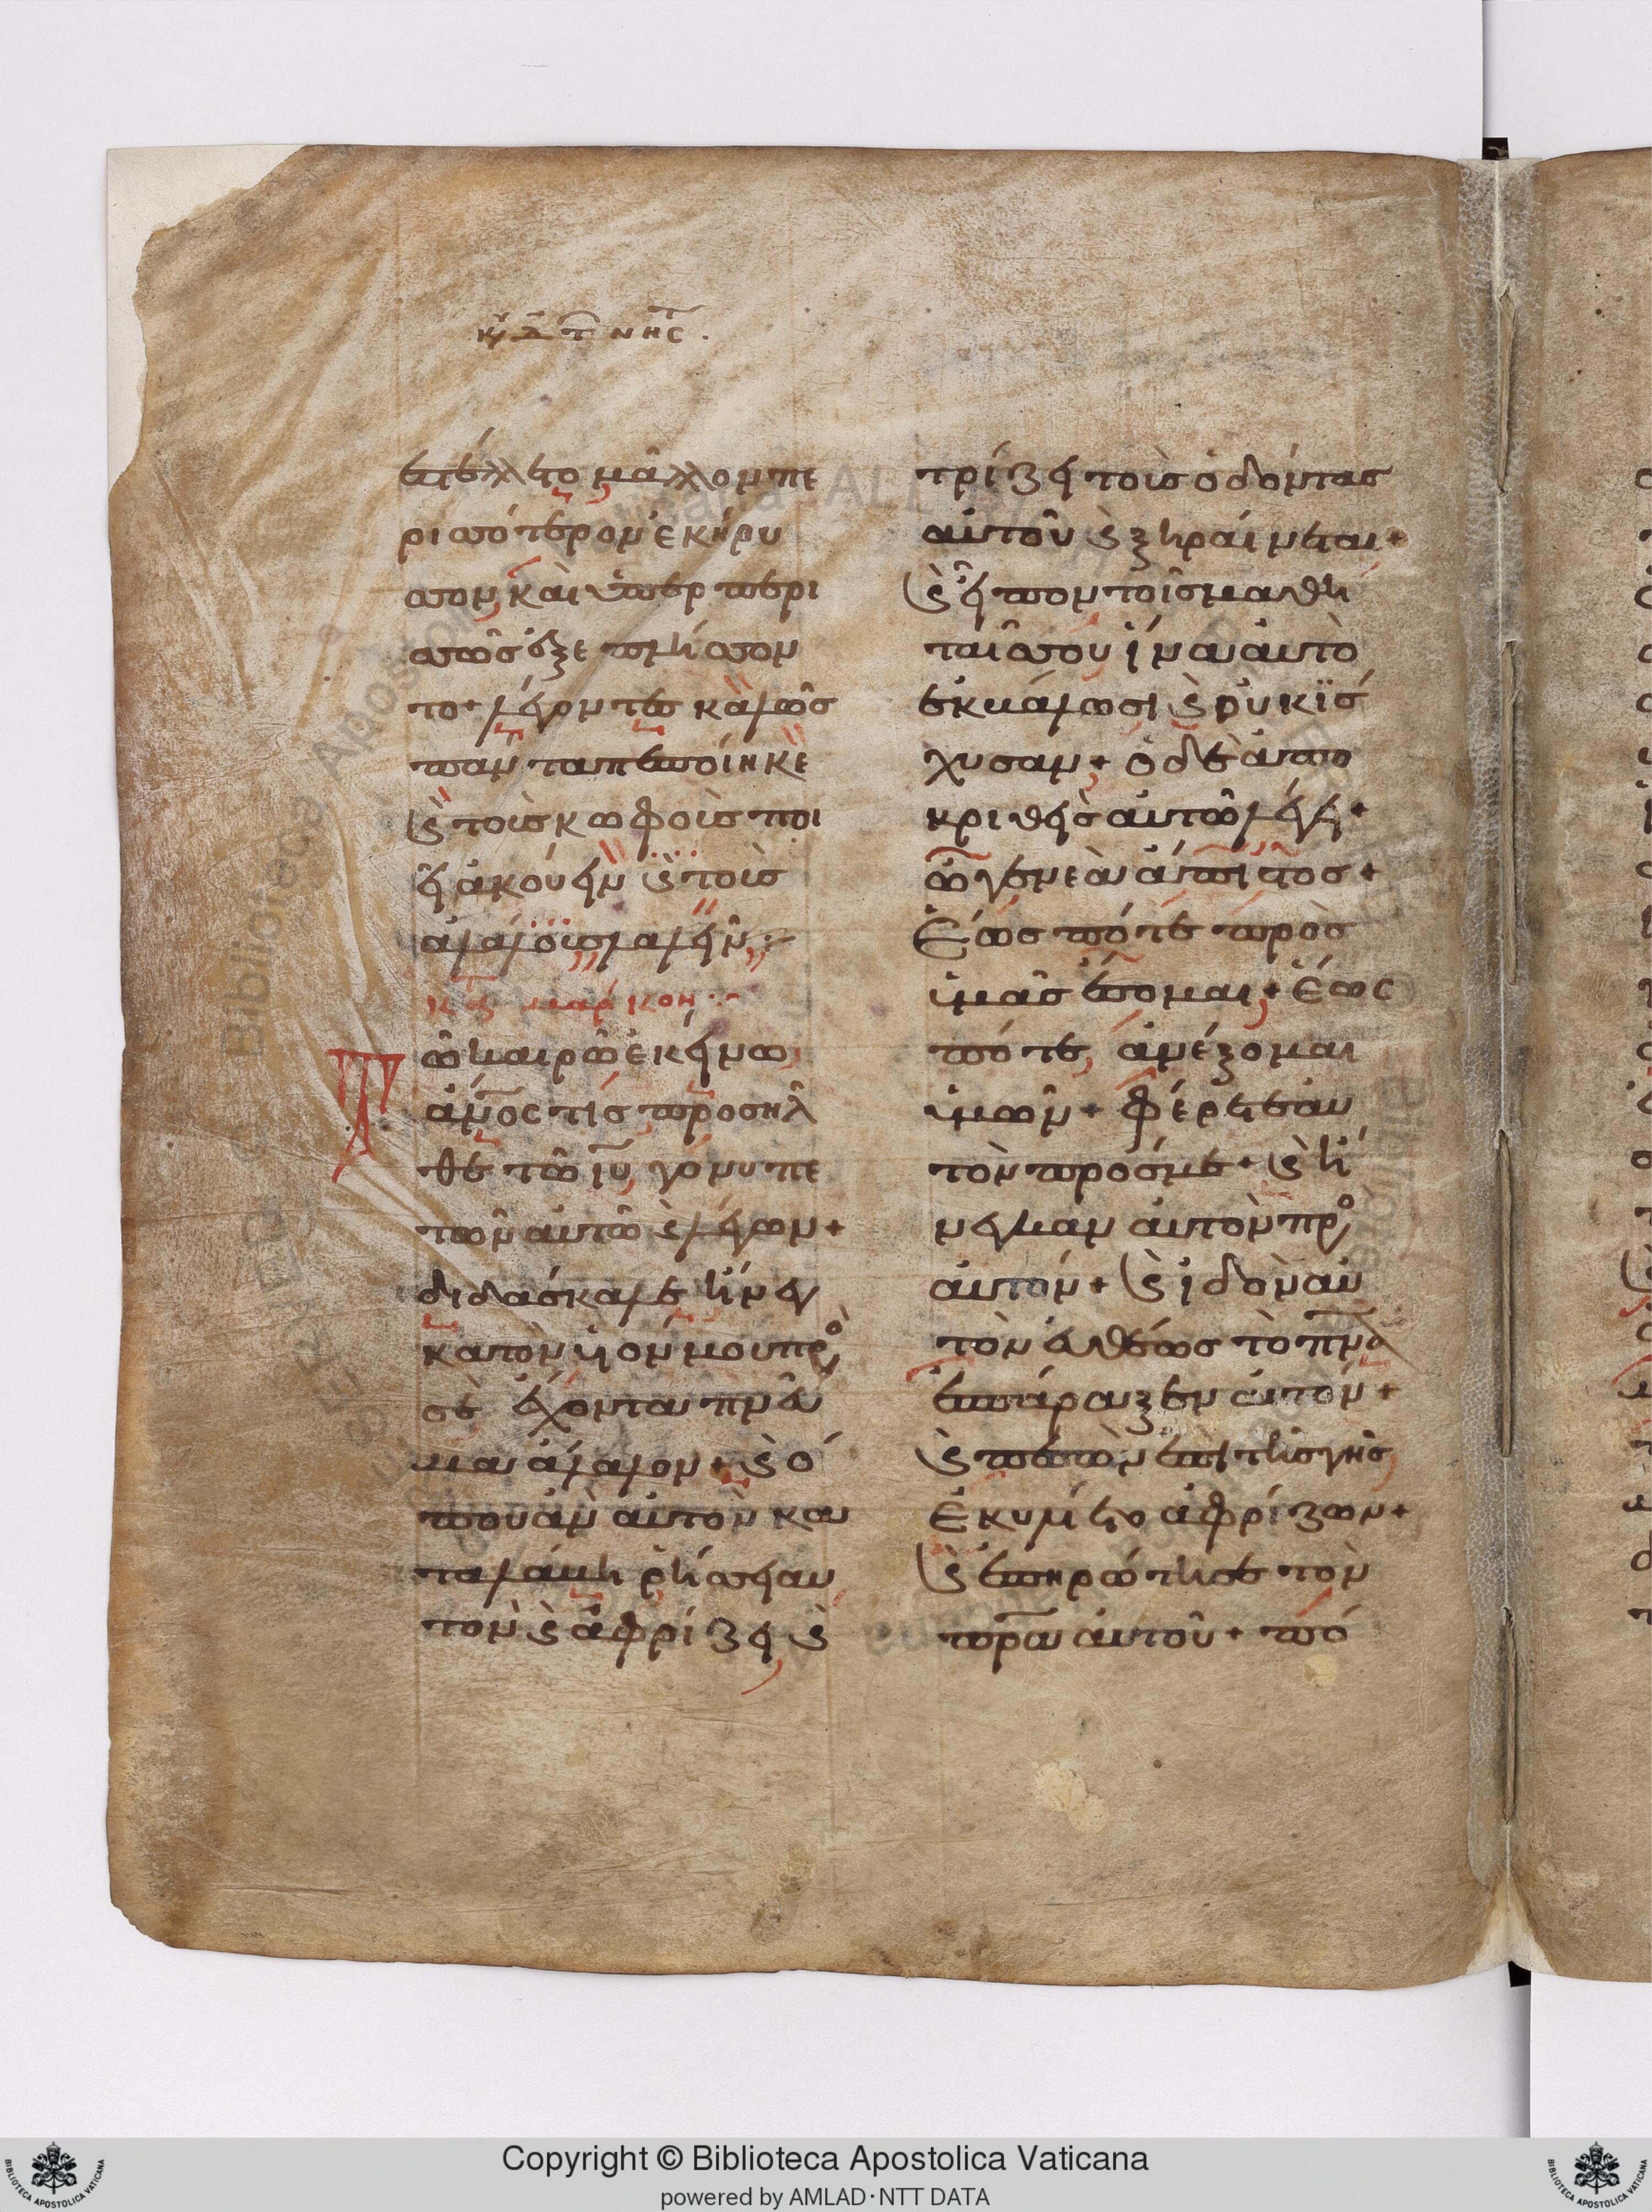 κυ δ τ νης τ.
στέλλετο μᾶλλον πε
ρισσότερον ἐκήρυ
σσον καὶ ὑπὲρ περι
σσῶς ἐξεπλήσσον
το + λέγοντες καλῶς
πάντα πεποίηκε
καὶ τοὺς κωφοὺς ποι
εῖ ἀκούειν καὶ τοὺς
ἀλάλους λαλεῖν :
ἐκ τοῦ κατὰ μάρκον :
Τῶ καιρῶ ἐκείνω
ἄνος τίς προσῆλ
θε τῶ ιυ γονυπε
τῶν αὐτῶ καὶ λέγων +
διδάσκαλε ἤνεγ
κα τὸν υἱόν μου πρὸς
σὲ ἔχοντα πνεῦ
μα ἄλαλον + καὶ ὅ
που ἂν αὐτὸν κα
ταλάβη ρήσσει αυ
τὸν καὶ ἀφρίζει καὶ
τρίζει τοὺς ὀδόντας
αὐτοῦ καὶ ξηραίνεται +
καὶ εἶπον τοῖς μαθη
ταῖς σου ἵνα αὐτὸ
ἐκβάλωσι καὶ οὐκ ἴσ
χυσαν + ὁ δὲ ἀπο
κριθεὶς αὐτῶ λέγει +
ὦ γενεὰ ἄπιστος +
ἕως πότε πρὸς
ὑμᾶς ἔσομαι + ἕως
πότε ἀνέξομαι
ὑμῶν + φέρετε αὐ
τὸν πρός με + καὶ ἤ
νεγκαν αὐτὸν πρὸς
αὐτόν + καὶ ἰδὸν αὐ
τὸν εὐθέως τὸ πνα
ἐσπάραξεν αὐτόν +
καὶ πεσὼν ἐπὶ τῆς γῆς
ἐκυλίετο ἀφρίζων +
καὶ ἐπηρώτησε τὸν
πρα αὐτοῦ + πό
Copyright © Biblioteca Apostolica Vaticana
powered by AMLAD·NTT DATA